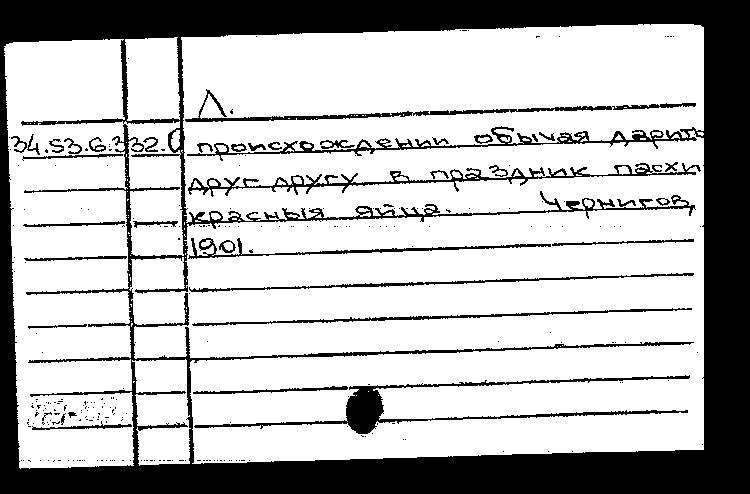 Л.
34.53.6.332. О происхождении обычая дарить
друг другу в праздник пасхи
красныя яйца. Чернигов,
1901.